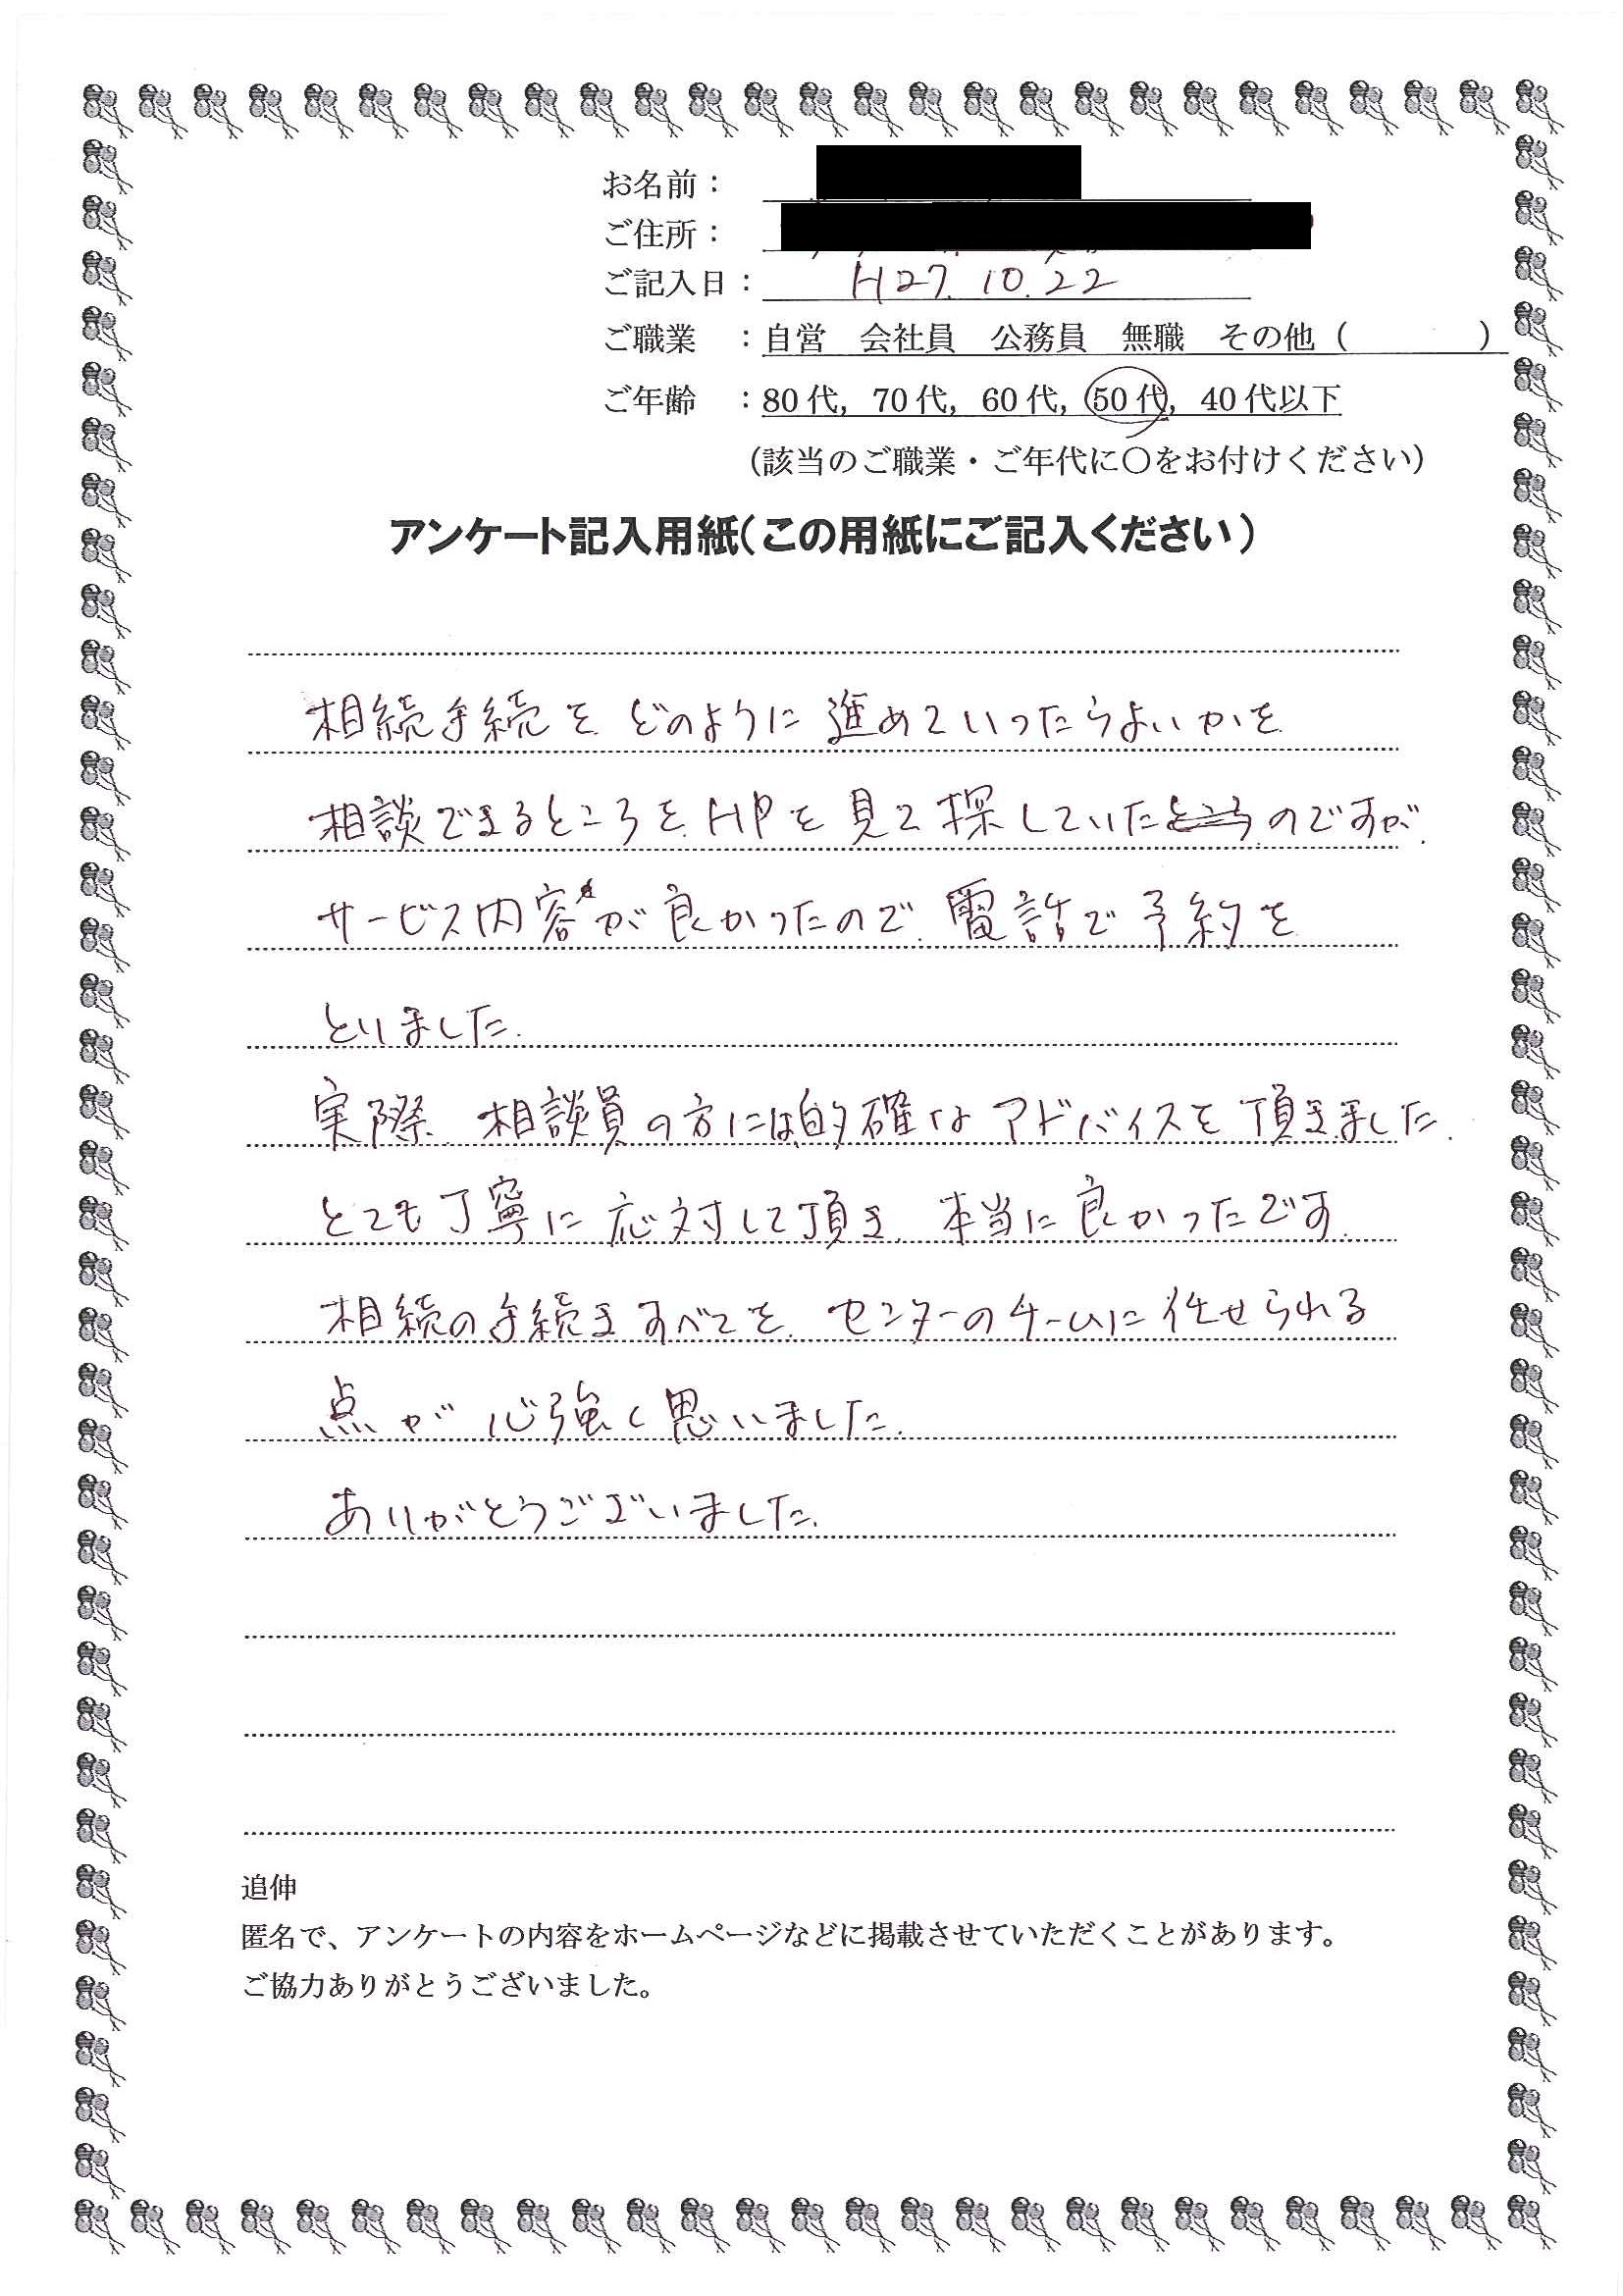 お名前：
ご住所：
ご記入日： H27. 10. 22
ご職業 ：自営 会社員 公務員 無職 その他（ ）
ご年齢 ：80代，70代，60代，50代，40代以下
（該当のご職業・ご年代に〇をお付けください）
アンケート記入用紙（この用紙にご記入ください）
相続手続を どのように 進めていったらよいかを
相談できるところを、HPを見て探していたのですが、
サービス内容が良かったので、電話で予約を
とりました。
実際、相談員の方には的確なアドバイスを頂きました。
とても丁寧に応対して頂き、本当に良かったです。
相続の手続きすべてを、センターのチームに任せられる
点が心強く思いました。
ありがとうございました。
追伸
匿名で、アンケートの内容をホームページなどに掲載させていただくことがあります。
ご協力ありがとうございました。